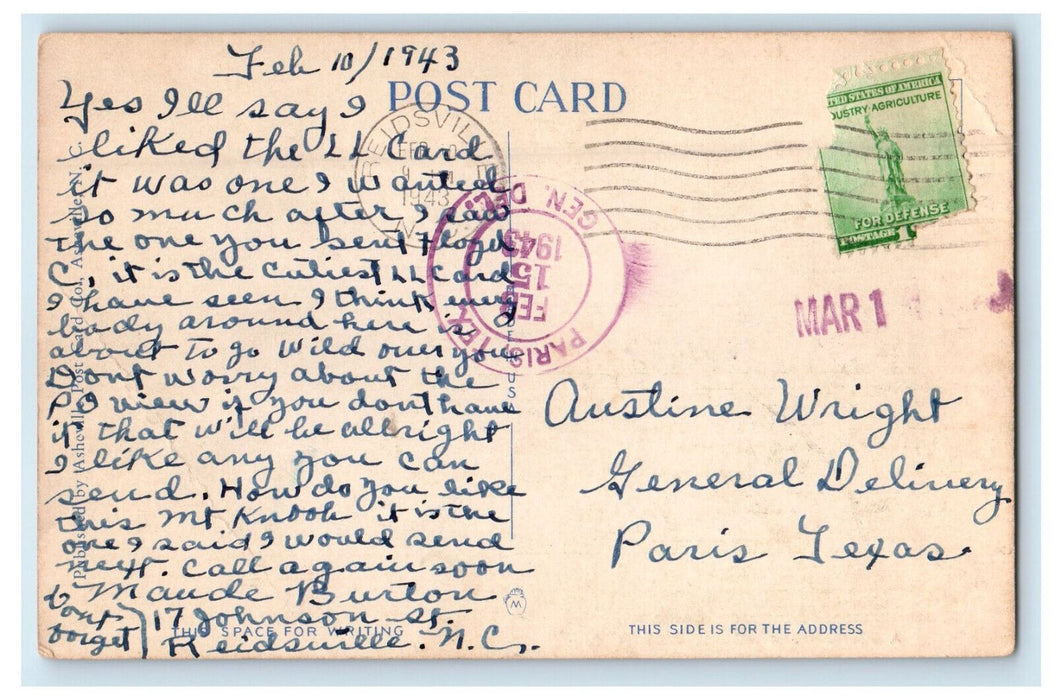 Feb 10/1943
POST CARD
Yes I'll say I
liked the LL Card
it was one I wanted
so much after I saw
the one you sent Floyd
C., it is the cutiest LL card
I have seen I think every
body around here is
about to go wild over you
Dont worry about the
P.O view if you dont have
it that will be allright
I like any you can
send. How do you like
this Mt Knoob it is the
one I said I would send
next. Call again soon
Maude Burton
17 Johnson St.
Reidsville. N.C.
Dont
forget
THIS SPACE FOR WRITING
Published by Asheville Post Card Co., Asheville, N. C.
REIDSVILLE
FEB 10
1943
N.C.
PARIS, TEX.
FEB
15
1943
GEN. DEL.
UNITED STATES OF AMERICA
INDUSTRY AGRICULTURE
FOR DEFENSE
POSTAGE 1¢
MAR 1
Austine Wright
General Delivery
Paris Texas.
M
THIS SIDE IS FOR THE ADDRESS